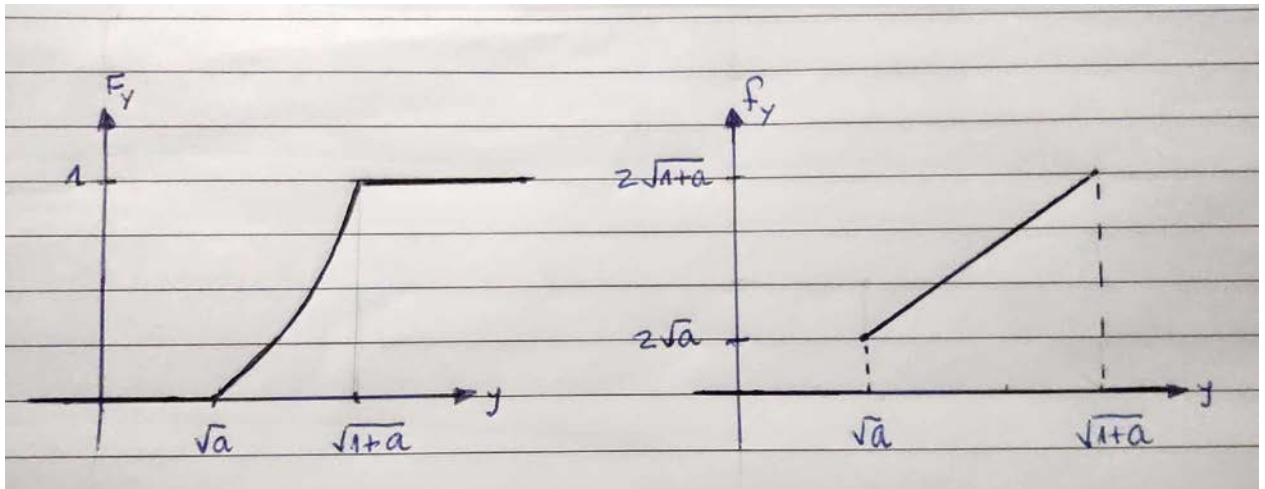 F_Y
1
√a
√1+a
y
f_Y
2√1+a
2√a
√a
√1+a
y